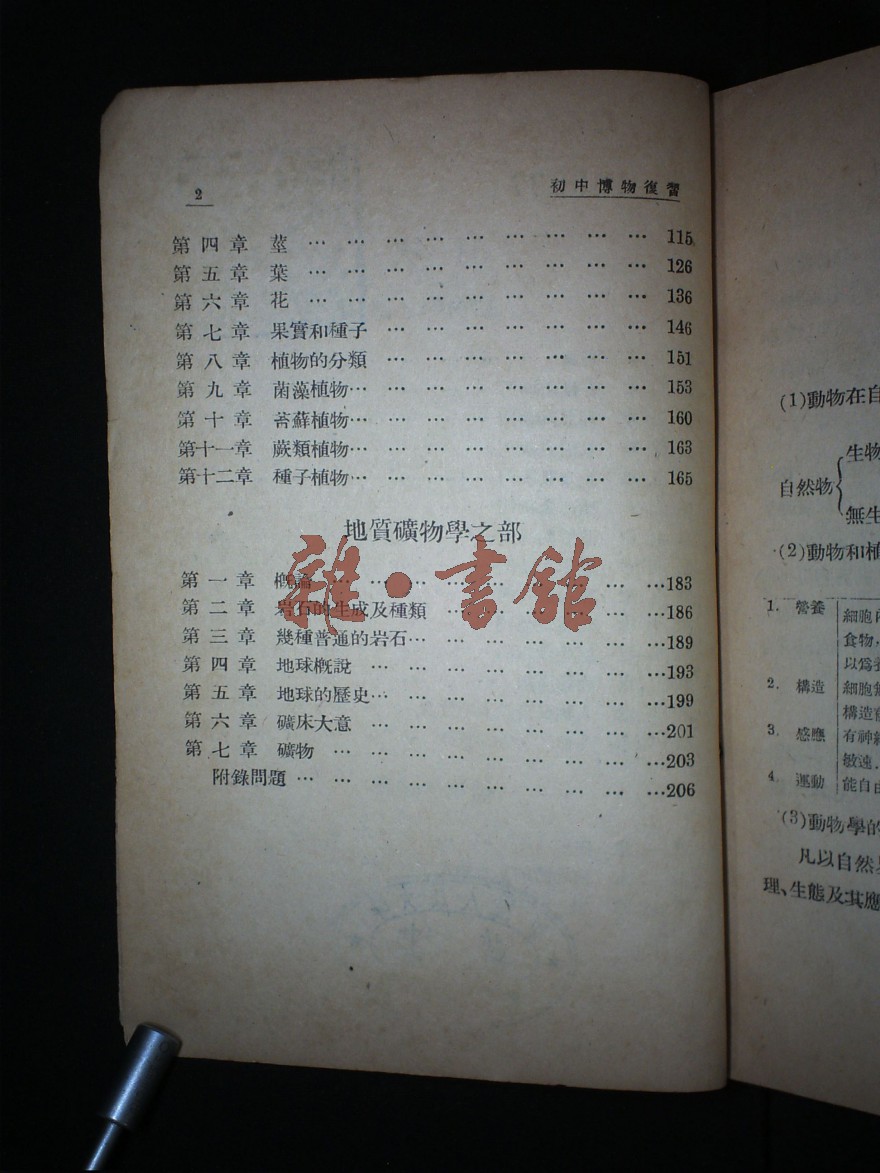 2
初中博物復習
第四章 莖 … … … … … … … … … 115
第五章 葉 … … … … … … … … … 126
第六章 花 … … … … … … … … … 136
第七章 果實和種子 … … … … … … … 146
第八章 植物的分類 … … … … … … … 151
第九章 菌藻植物… … … … … … … … 153
第十章 苔蘚植物… … … … … … … … 160
第十一章 蕨類植物… … … … … … … … 163
第十二章 種子植物… … … … … … … … 165
地質礦物學之部
第一章 概論 … … … … … … … … …183
第二章 岩石的生成及種類 … … … … … …186
第三章 幾種普通的岩石… … … … … … …189
第四章 地球概說 … … … … … … … …193
第五章 地球的歷史… … … … … … … …199
第六章 礦床大意 … … … … … … … …201
第七章 礦物 … … … … … … … … …203
附錄問題 … … … … … … … … … …206
雜·書館
(1)動物在自
自然物
生物
無生
(2)動物和植
1. 營養 細胞
食物,
以爲養
2. 構造 細胞無
構造
3. 感應 有神經
敏速.
4. 運動 能自由
(3)動物學的
凡以自然
理、生態及其應